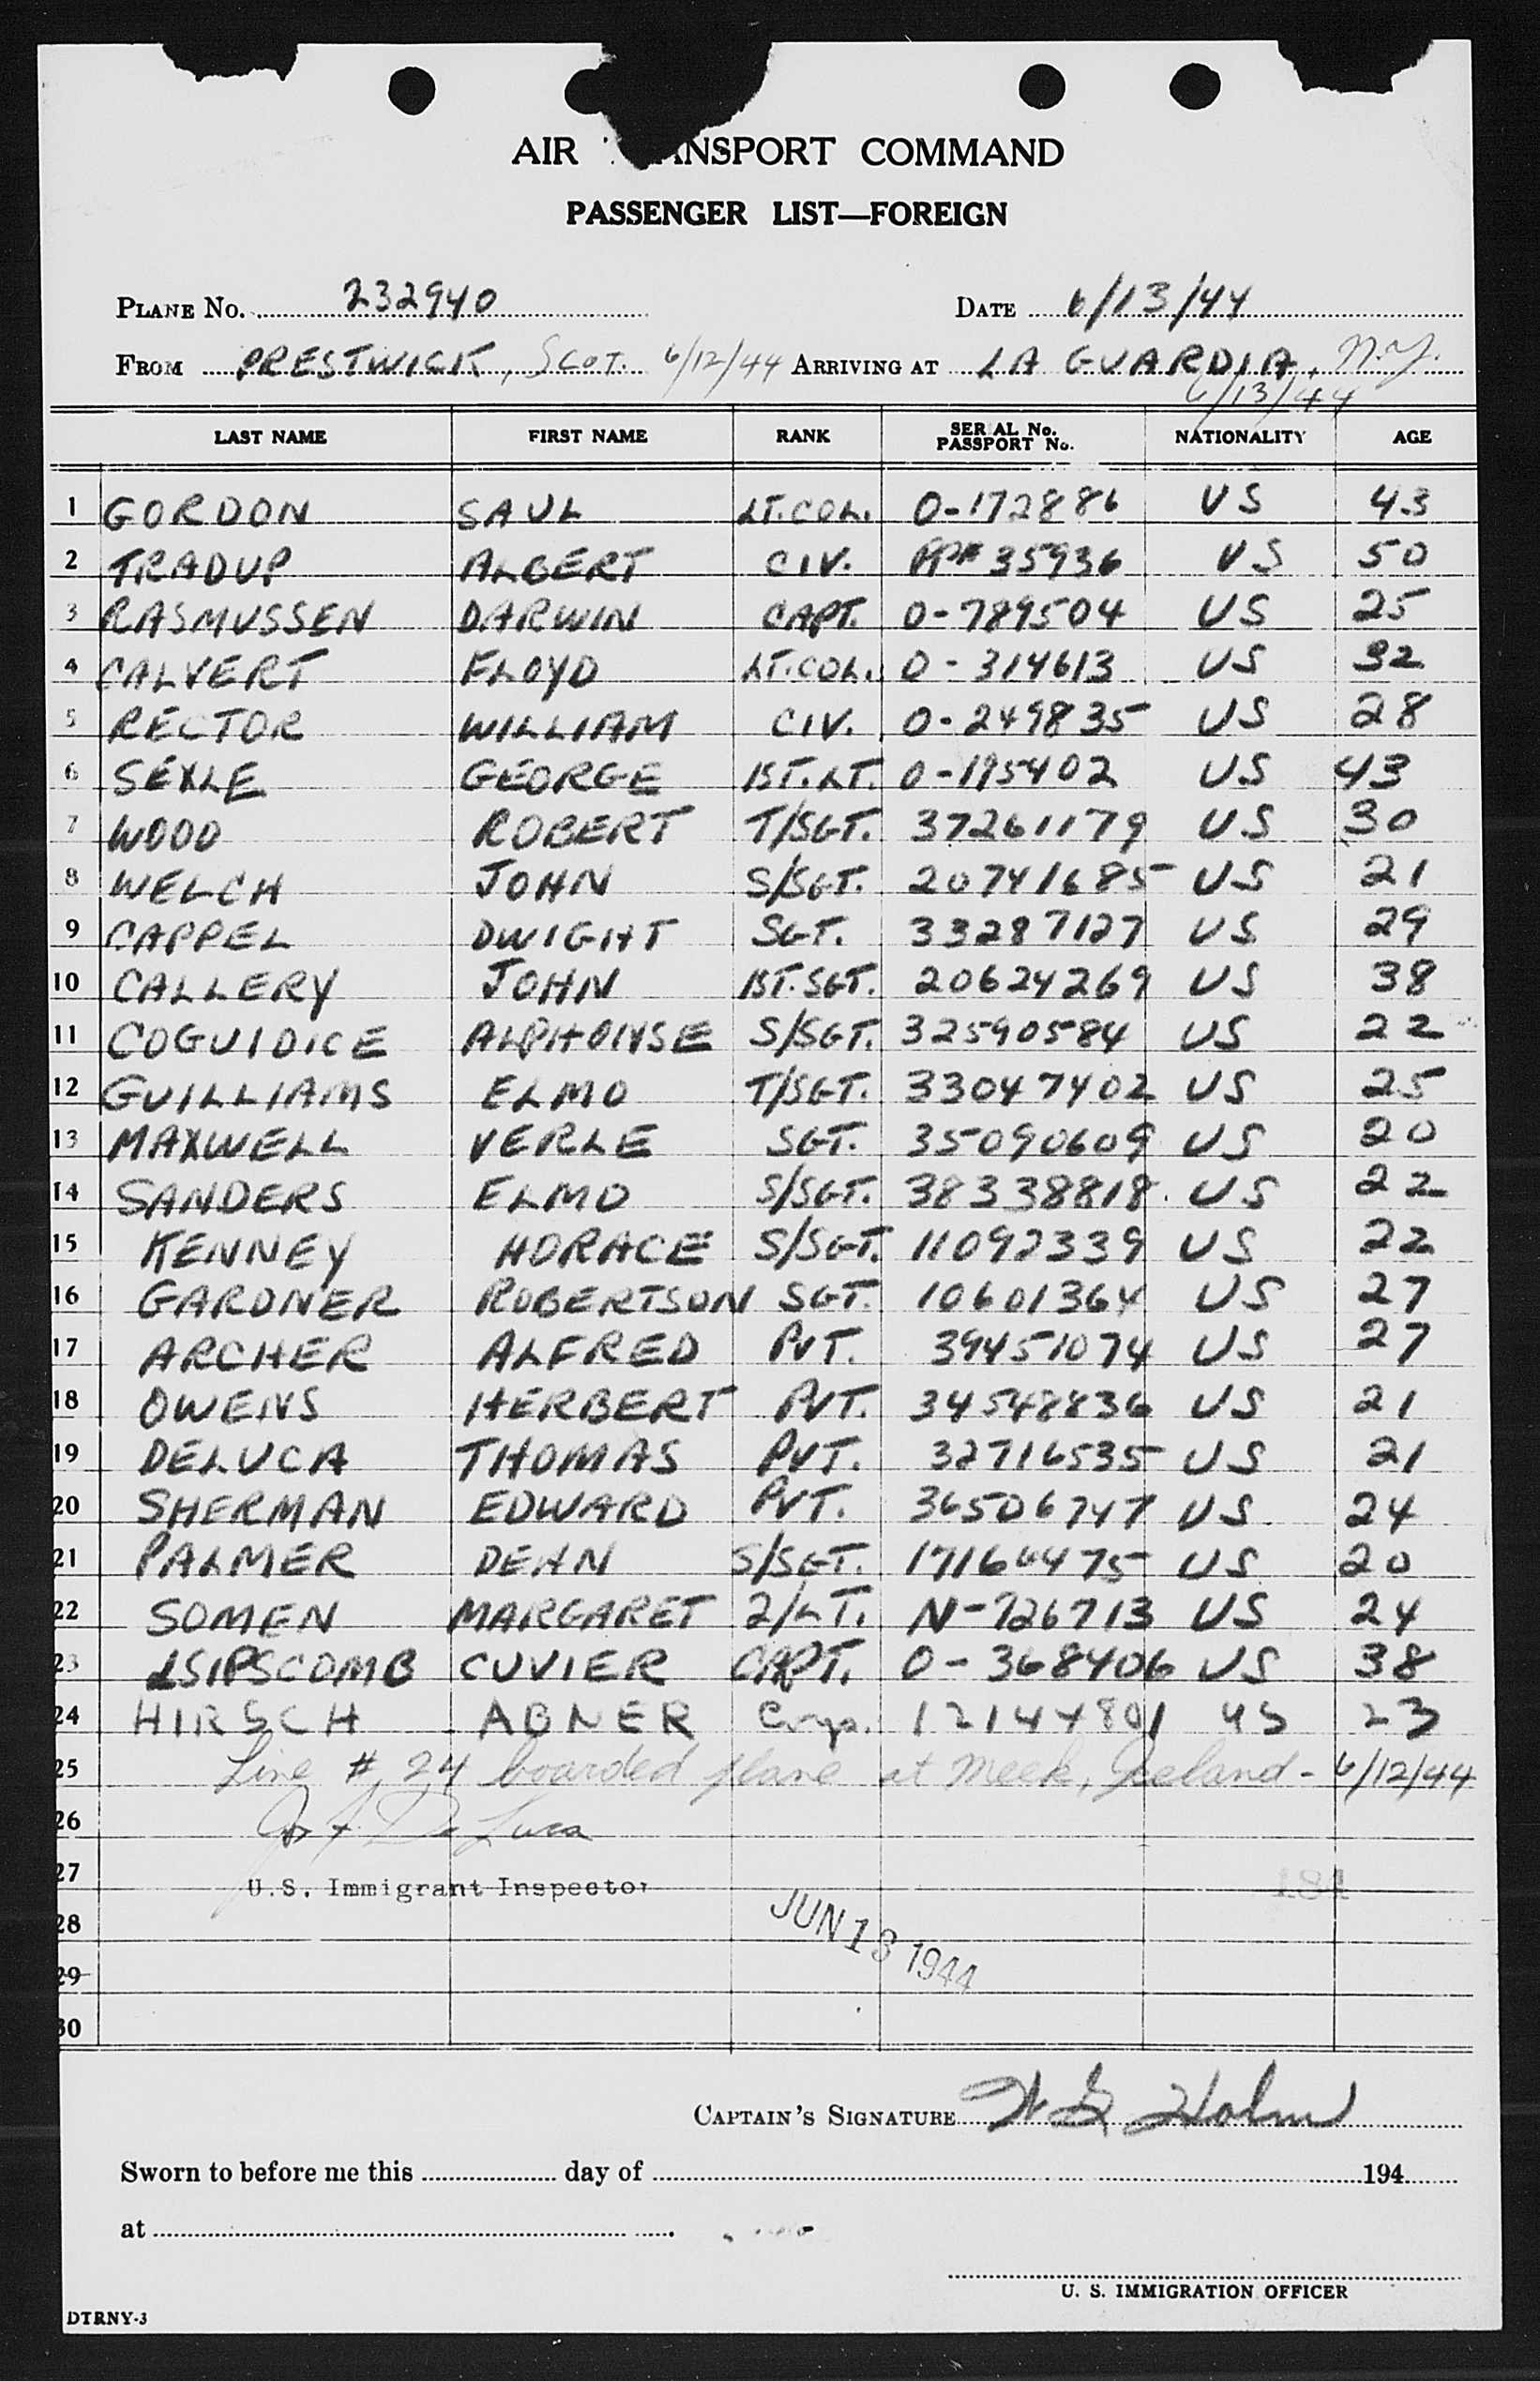 AIR TRANSPORT COMMAND
PASSENGER LIST—FOREIGN
PLANE No. 232940 DATE 6/13/44
FROM PRESTWICK, SCOT. 6/12/44 ARRIVING AT LA GUARDIA, N.Y.
6/13/44
LAST NAME FIRST NAME RANK SERIAL No. PASSPORT No. NATIONALITY AGE
1 GORDON SAUL LT.COL. O-172886 US 43
2 TRADUP ALBERT CIV. PP# 35936 US 50
3 RASMUSSEN DARWIN CAPT. O-789504 US 25
4 CALVERT FLOYD LT.COL. O-314613 US 32
5 RECTOR WILLIAM CIV. O-249835 US 28
6 SEXLE GEORGE 1ST.LT. O-195402 US 43
7 WOOD ROBERT T/SGT. 37261179 US 30
8 WELCH JOHN S/SGT. 20741685 US 21
9 CAPPEL DWIGHT SGT. 33287127 US 29
10 CALLERY JOHN 1ST.SGT. 20624269 US 38
11 COGUIDICE ALPHONSE S/SGT. 32590584 US 22
12 GUILLIAMS ELMO T/SGT. 33047402 US 25
13 MAXWELL VERLE SGT. 35090609 US 20
14 SANDERS ELMO S/SGT. 38338818 US 22
15 KENNEY HORACE S/SGT. 11092339 US 22
16 GARDNER ROBERTSON SGT. 10601364 US 27
17 ARCHER ALFRED PVT. 39451074 US 27
18 OWENS HERBERT PVT. 34548836 US 21
19 DELUCA THOMAS PVT. 32716535 US 21
20 SHERMAN EDWARD PVT. 36506747 US 24
21 PALMER DEAN S/SGT. 17164475 US 20
22 SOMEN MARGARET 2/LT. N-726713 US 24
23 LSIPSCOMB CUVIER CAPT. O-368406 US 38
24 HIRSCH ABNER Corp. 12144801 US 23
25 Line # 24 boarded plane at Meek, Iceland - 6/12/44
26 De Luca
27 U.S. Immigrant Inspector 181
28 JUN 13 1944
29
30
CAPTAIN'S SIGNATURE Holm
Sworn to before me this day of 194
at
U. S. IMMIGRATION OFFICER
DTRNY-3